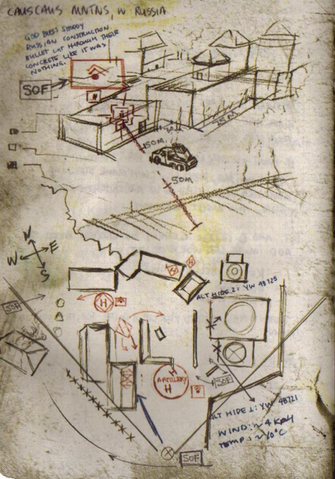 CAUSCAUS MNTNS, W RUSSIA
GOD BLESS SHODDY
RUSSIAN CONSTRUCTION
BULLET CUT THROUGH THEIR
CONCRETE LIKE IT WAS
NOTHING.
SOF
50M
50M
N
W E
S
ALT HIDE 2: YW
H
ARTILLERY
H
ALT HIDE 1: YW 48721
WIND: ~4 KPH
TEMP: ~10°C
SOF